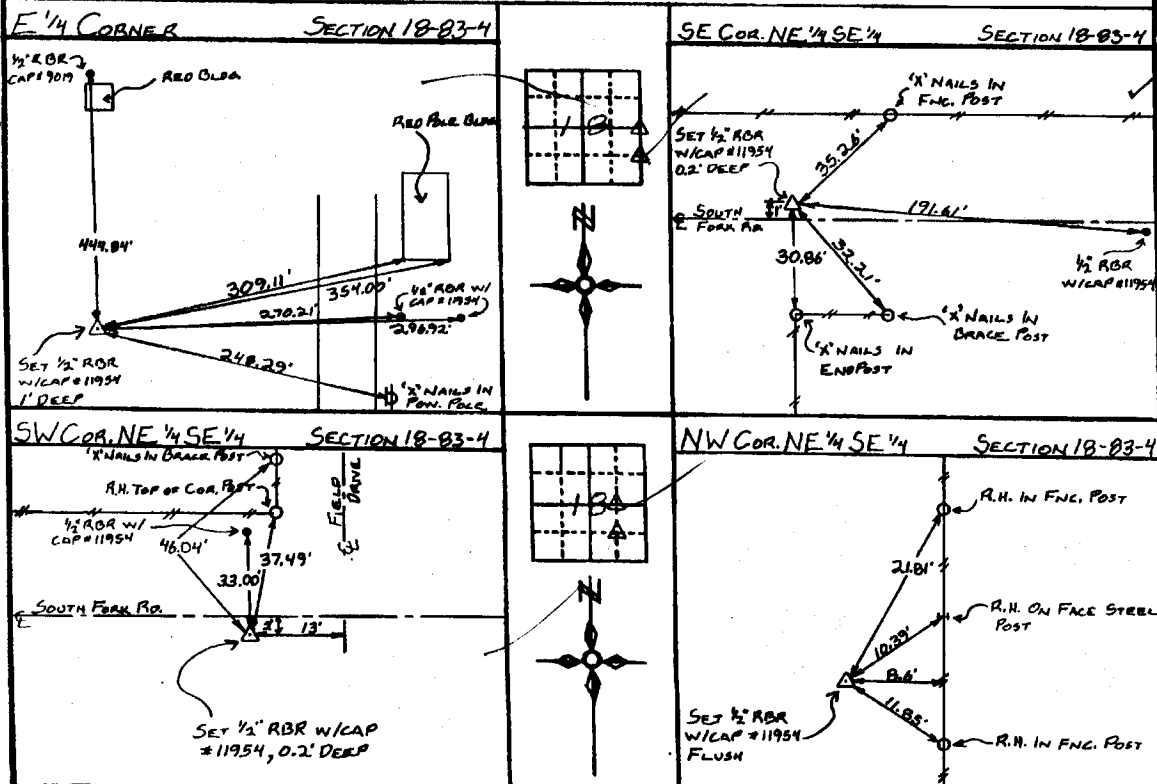 E 1/4 CORNER SECTION 18-83-4
1/2" RBR
CAP # 9019
RED BLDG
RED POLE BLDG
309.11'
354.00'
270.21'
1/2" RBR W/
CAP # 11954
296.92'
SET 1/2" RBR
W/CAP #11954
1' DEEP
"X" NAILS IN
POW. POLE
18
N
SE COR. NE 1/4 SE 1/4 SECTION 18-83-4
"X" NAILS IN
FNC. POST
SET 1/2" RBR
W/CAP #11954
0.2' DEEP
35.26'
1'
191.61'
SOUTH
FORK RD.
30.86'
32.21'
1/2" RBR
W/CAP #11954
"X" NAILS IN
BRACE POST
"X" NAILS IN
END POST
SW COR. NE 1/4 SE 1/4 SECTION 18-83-4
"X" NAILS IN BRACE POST
R.H. TOP OF COR. POST
FIELD
DRIVE
1/2" RBR W/
CAP #11954
46.04'
37.49'
33.00'
SOUTH FORK RD.
13'
SET 1/2" RBR W/CAP
#11954, 0.2' DEEP
18
N
NW COR. NE 1/4 SE 1/4 SECTION 18-83-4
R.H. IN FNC. POST
21.81'
R.H. ON FACE STEEL
POST
10.39'
8.6'
11.85'
SET 1/2" RBR
W/CAP #11954
FLUSH
R.H. IN FNC. POST